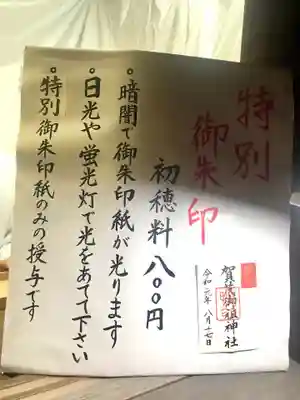 特別
御朱印
賀茂御祖神社
令和元年 八月十七日
初穂料 八〇〇円
・暗闇で御朱印紙が光ります
・日光や蛍光灯で光をあてて下さい
・特別御朱印紙のみの授与です